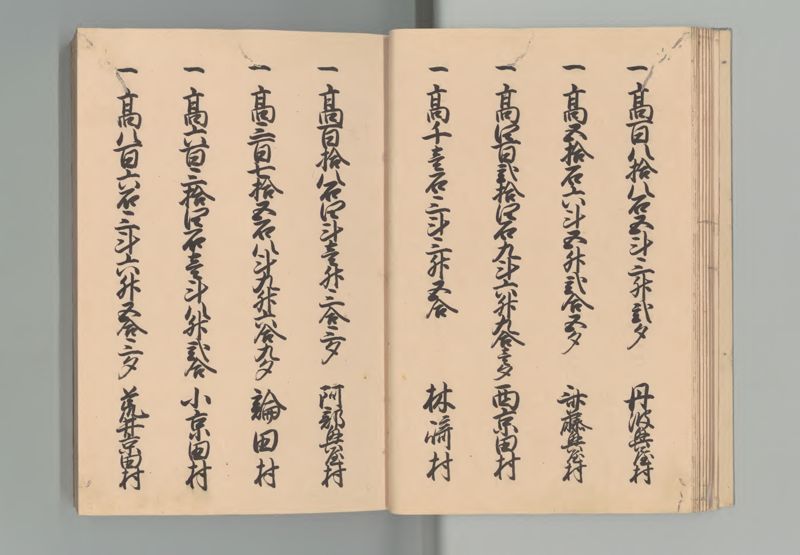 一 高百八拾八石五斗三升弐夕 丹波興屋村
一 高五拾石六斗五升弐合五夕 斎藤興屋村
一 高四百弐拾四石九斗六升九合壱夕 西京田村
一 高千壱石三斗三升五合 林崎村
一 高百拾八石四斗壱升三合三夕 阿部興屋村
一 高三百七拾五石八斗九升六合九夕 播田村
一 高六百三拾四石壱斗八升弐合 小京田村
一 高八百六石三斗六升五合三夕 荒井京田村